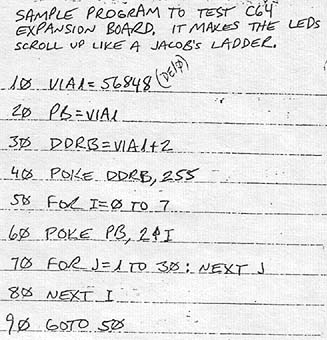 SAMPLE PROGRAM TO TEST C64
EXPANSION BOARD. IT MAKES THE LEDS
SCROLL UP LIKE A JACOB'S LADDER.
10 VIA1=56848 (DE10)
20 PB=VIA1
30 DDRB=VIA1+2
40 POKE DDRB, 255
50 FOR I=0 TO 7
60 POKE PB, 2↑I
70 FOR J=1 TO 30: NEXT J
80 NEXT I
90 GOTO 50